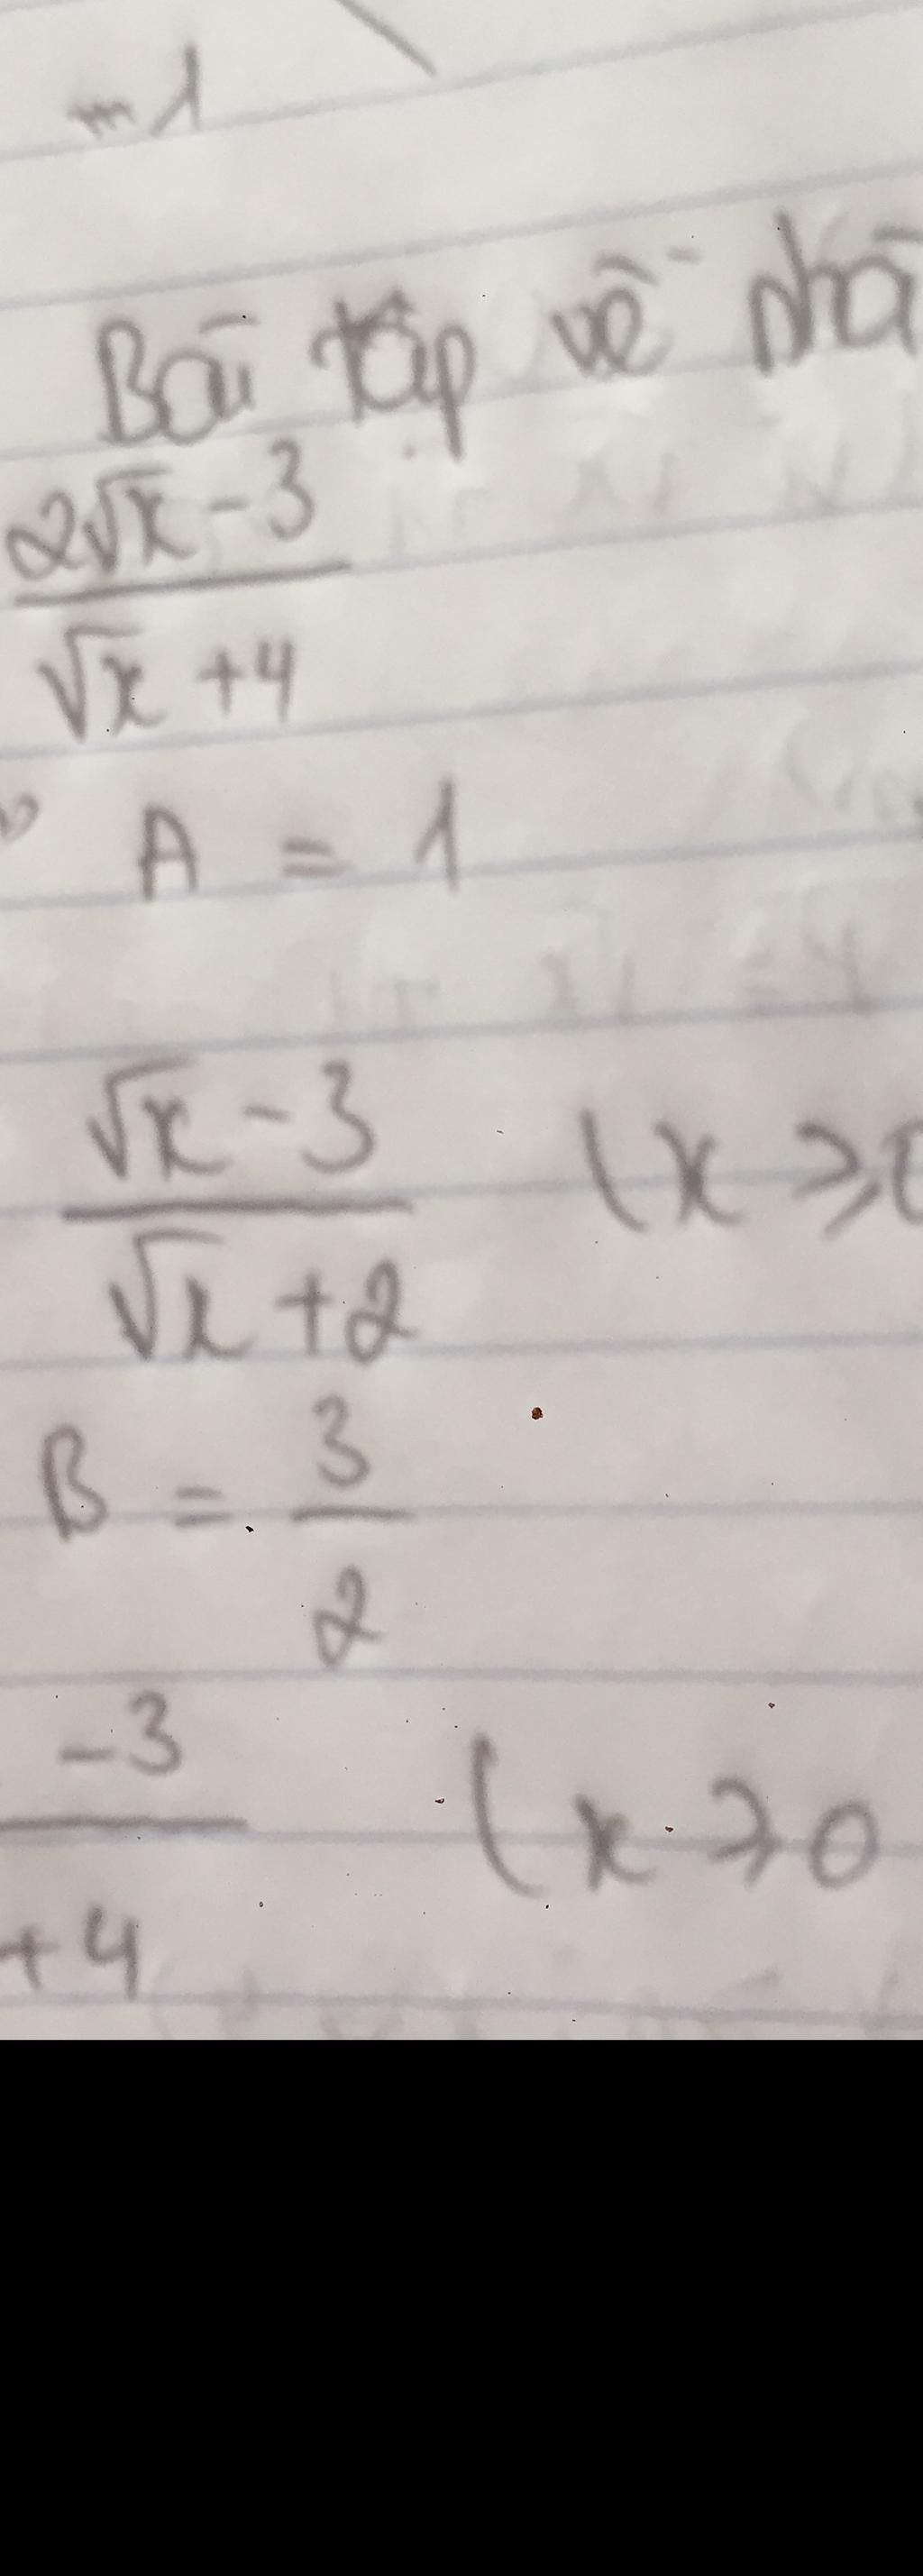 m1
Bài tập về nhà
2√x - 3
√x + 4
A = 1
√x - 3 (x ⩾ 0
√x + 2
B = 3
2
- 3 (x ⩾ 0
+ 4